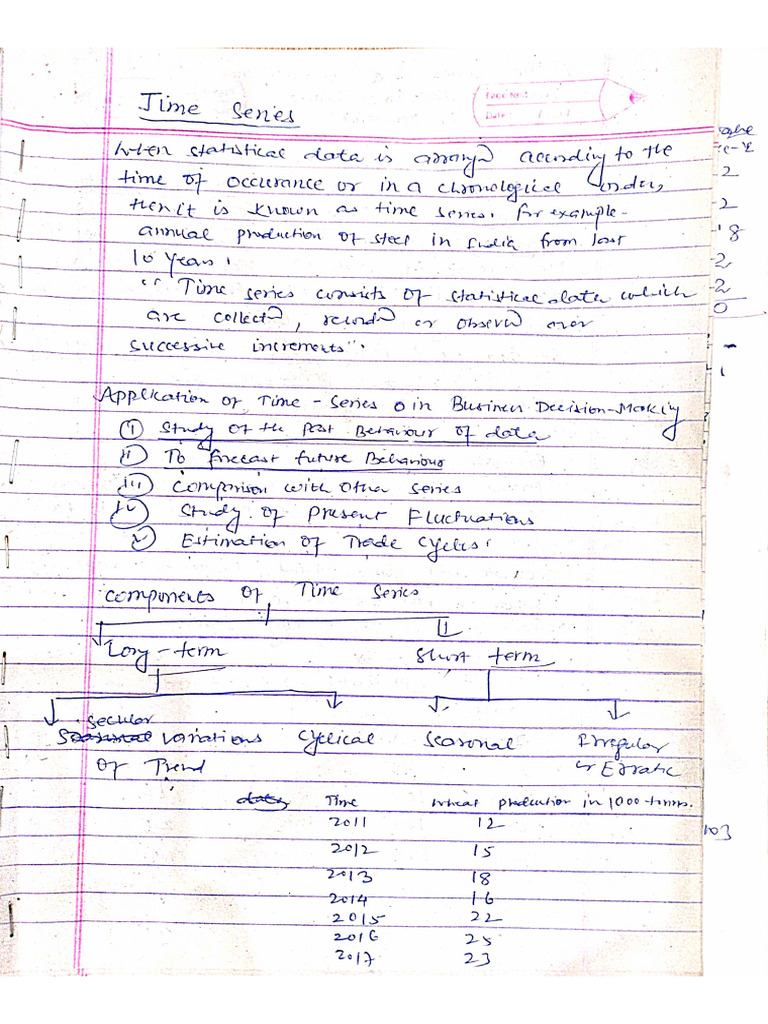 Page No.:
Date: / /
Time Series
When statistical data is arranged according to the
time of occurance or in a chronological order,
then it is known as time series. for example-
annual production of steel in India from last
10 years.
"Time series consists of statistical data which
are collected, recorded or observed over
successive increments".
Application of Time-Series in Business Decision-Making
(i) Study of the Past Behaviour of data
(ii) To forecast future Behaviour
(iii) Comparison with other series
(iv) Study of Present Fluctuations
(v) Estimation of Trade Cycles.
Components of Time Series
Long-term Short term
Secular
variations Cyclical Seasonal Irregular
or Trend or Erratic
Time Wheat production in 1000 tonns.
2011 12
2012 15
2013 18
2014 16
2015 22
2016 25
2017 23
2
2
18
2
2
0
103